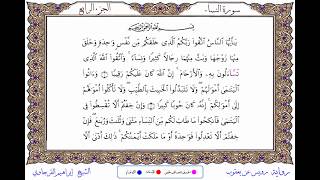 سورة النساء الجزء الرابع
بِسْمِ ٱللَّهِ ٱلرَّحْمَٰنِ ٱلرَّحِيمِ
يَٰٓأَيُّهَا ٱلنَّاسُ ٱتَّقُوا۟ رَبَّكُمُ ٱلَّذِى خَلَقَكُم مِّن نَّفْسٍ وَٰحِدَةٍ وَخَلَقَ
مِنْهَا زَوْجَهَا وَبَثَّ مِنْهُمَا رِجَالًا كَثِيرًا وَنِسَآءً وَٱتَّقُوا۟ ٱللَّهَ ٱلَّذِى
تَسَّآءَلُونَ بِهِۦ وَٱلْأَرْحَامَ إِنَّ ٱللَّهَ كَانَ عَلَيْكُمْ رَقِيبًا ١ وَءَاتُوا۟
ٱلْيَتَٰمَىٰٓ أَمْوَٰلَهُمْ وَلَا تَتَبَدَّلُوا۟ ٱلْخَبِيثَ بِٱلطَّيِّبِ وَلَا تَأْكُلُوٓا۟ أَمْوَٰلَهُمْ
إِلَىٰٓ أَمْوَٰلِكُمْ إِنَّهُۥ كَانَ حُوبًا كَبِيرًا ٢ وَإِنْ خِفْتُمْ أَلَّا تُقْسِطُوا۟ فِى
ٱلْيَتَٰمَىٰ فَٱنكِحُوا۟ مَا طَابَ لَكُم مِّنَ ٱلنِّسَآءِ مَثْنَىٰ وَثُلَٰثَ وَرُبَٰعَ فَإِنْ
خِفْتُمْ أَلَّا تَعْدِلُوا۟ فَوَٰحِدَةً أَوْ مَا مَلَكَتْ أَيْمَٰنُكُمْ ذَٰلِكَ أَدْنَىٰٓ أَلَّا
رواية رويس عن يعقوب الشيخ إبراهيم